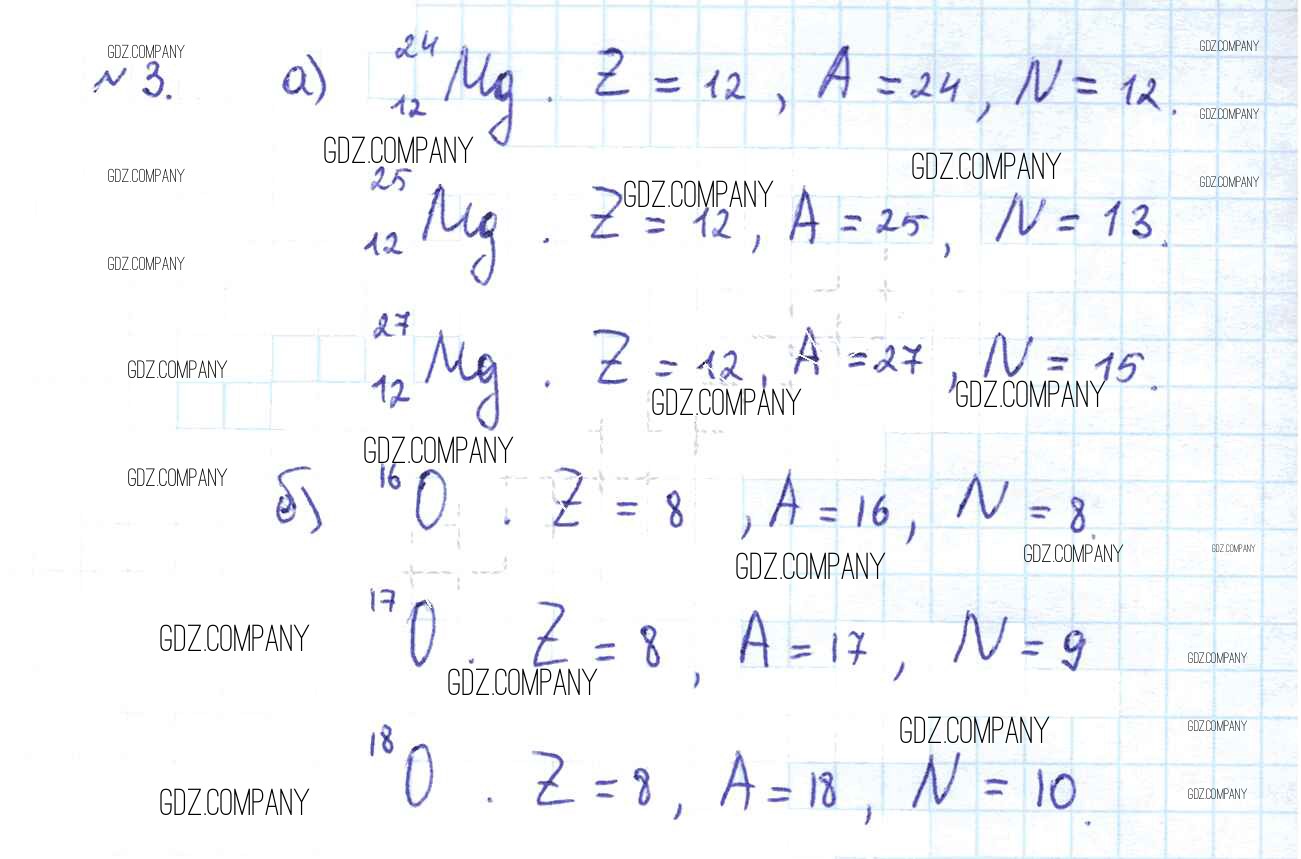 GDZ.COMPANY GDZ.COMPANY
№ 3. а) ²⁴₁₂Mg. Z = 12, A = 24, N = 12.
GDZ.COMPANY
GDZ.COMPANY GDZ.COMPANY
GDZ.COMPANY GDZ.COMPANY GDZ.COMPANY
²⁵₁₂Mg. Z = 12, A = 25, N = 13.
GDZ.COMPANY
²⁷₁₂Mg. Z = 12, A = 27, N = 15.
GDZ.COMPANY GDZ.COMPANY GDZ.COMPANY
GDZ.COMPANY
GDZ.COMPANY
б) ¹⁶O. Z = 8, A = 16, N = 8.
GDZ.COMPANY GDZ.COMPANY GDZ.COMPANY
¹⁷O. Z = 8, A = 17, N = 9
GDZ.COMPANY GDZ.COMPANY GDZ.COMPANY
GDZ.COMPANY GDZ.COMPANY
¹⁸O. Z = 8, A = 18, N = 10.
GDZ.COMPANY GDZ.COMPANY